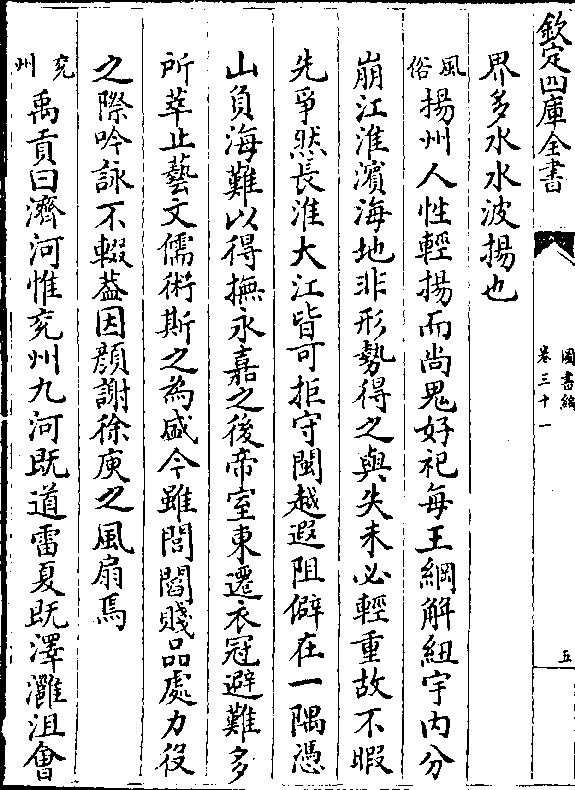 欽定四庫全書
圖書編
卷三十一
五
界多水水波揚也
風俗
揚州人性輕揚而尚鬼好祀每王綱解紐宇内分
崩江淮濱海地非形勢得之與失未必輕重故不暇
先爭然長淮大江皆可拒守閩越遐阻僻在一隅憑
山負海難以得撫永嘉之後帝室東遷衣冠避難多
所萃止藝文儒術斯之為盛今雖閭閻賤品處力役
之際吟詠不輟葢因顔謝徐庾之風扇焉
兖州
禹貢曰濟河惟兖州九河既道雷夏既澤灉沮會